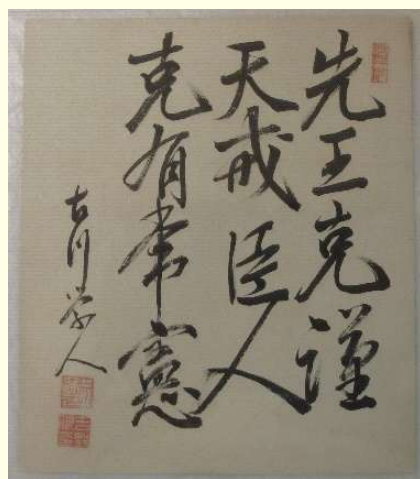 先王克謹
天戒臣人
克有常憲
古川学人